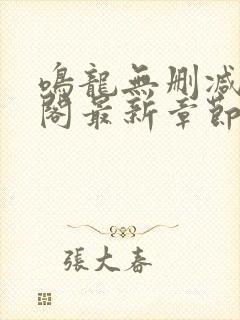 鳴龍無刪減
閣最新章節
張大春